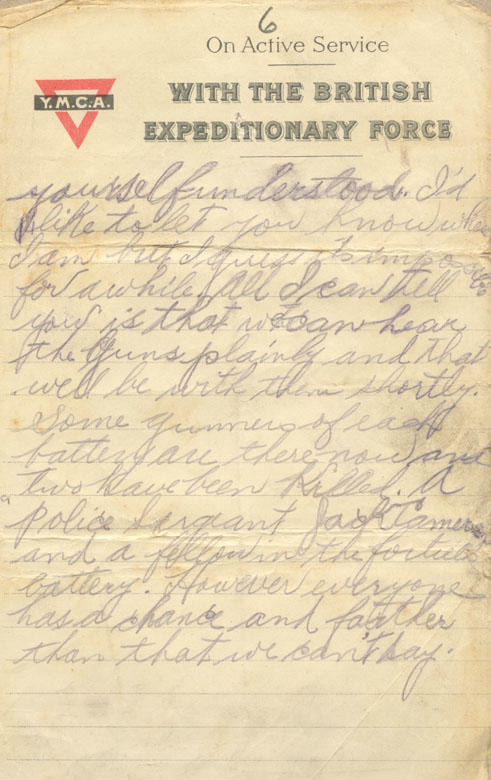 6
On Active Service
WITH THE BRITISH
EXPEDITIONARY FORCE
Y.M.C.A.
yourself understood. I'd
like to let you know where
I am but I guess its impossible
for awhile. All I can tell
you is that we can hear
the Guns plainly and that
we'll be with them shortly.
Some gunners of each
battery are there now and
two have been killed. A
Police Sargant Jack
and a fellow in the
battery. However everyone
has a chance and farther
than that we can't say.